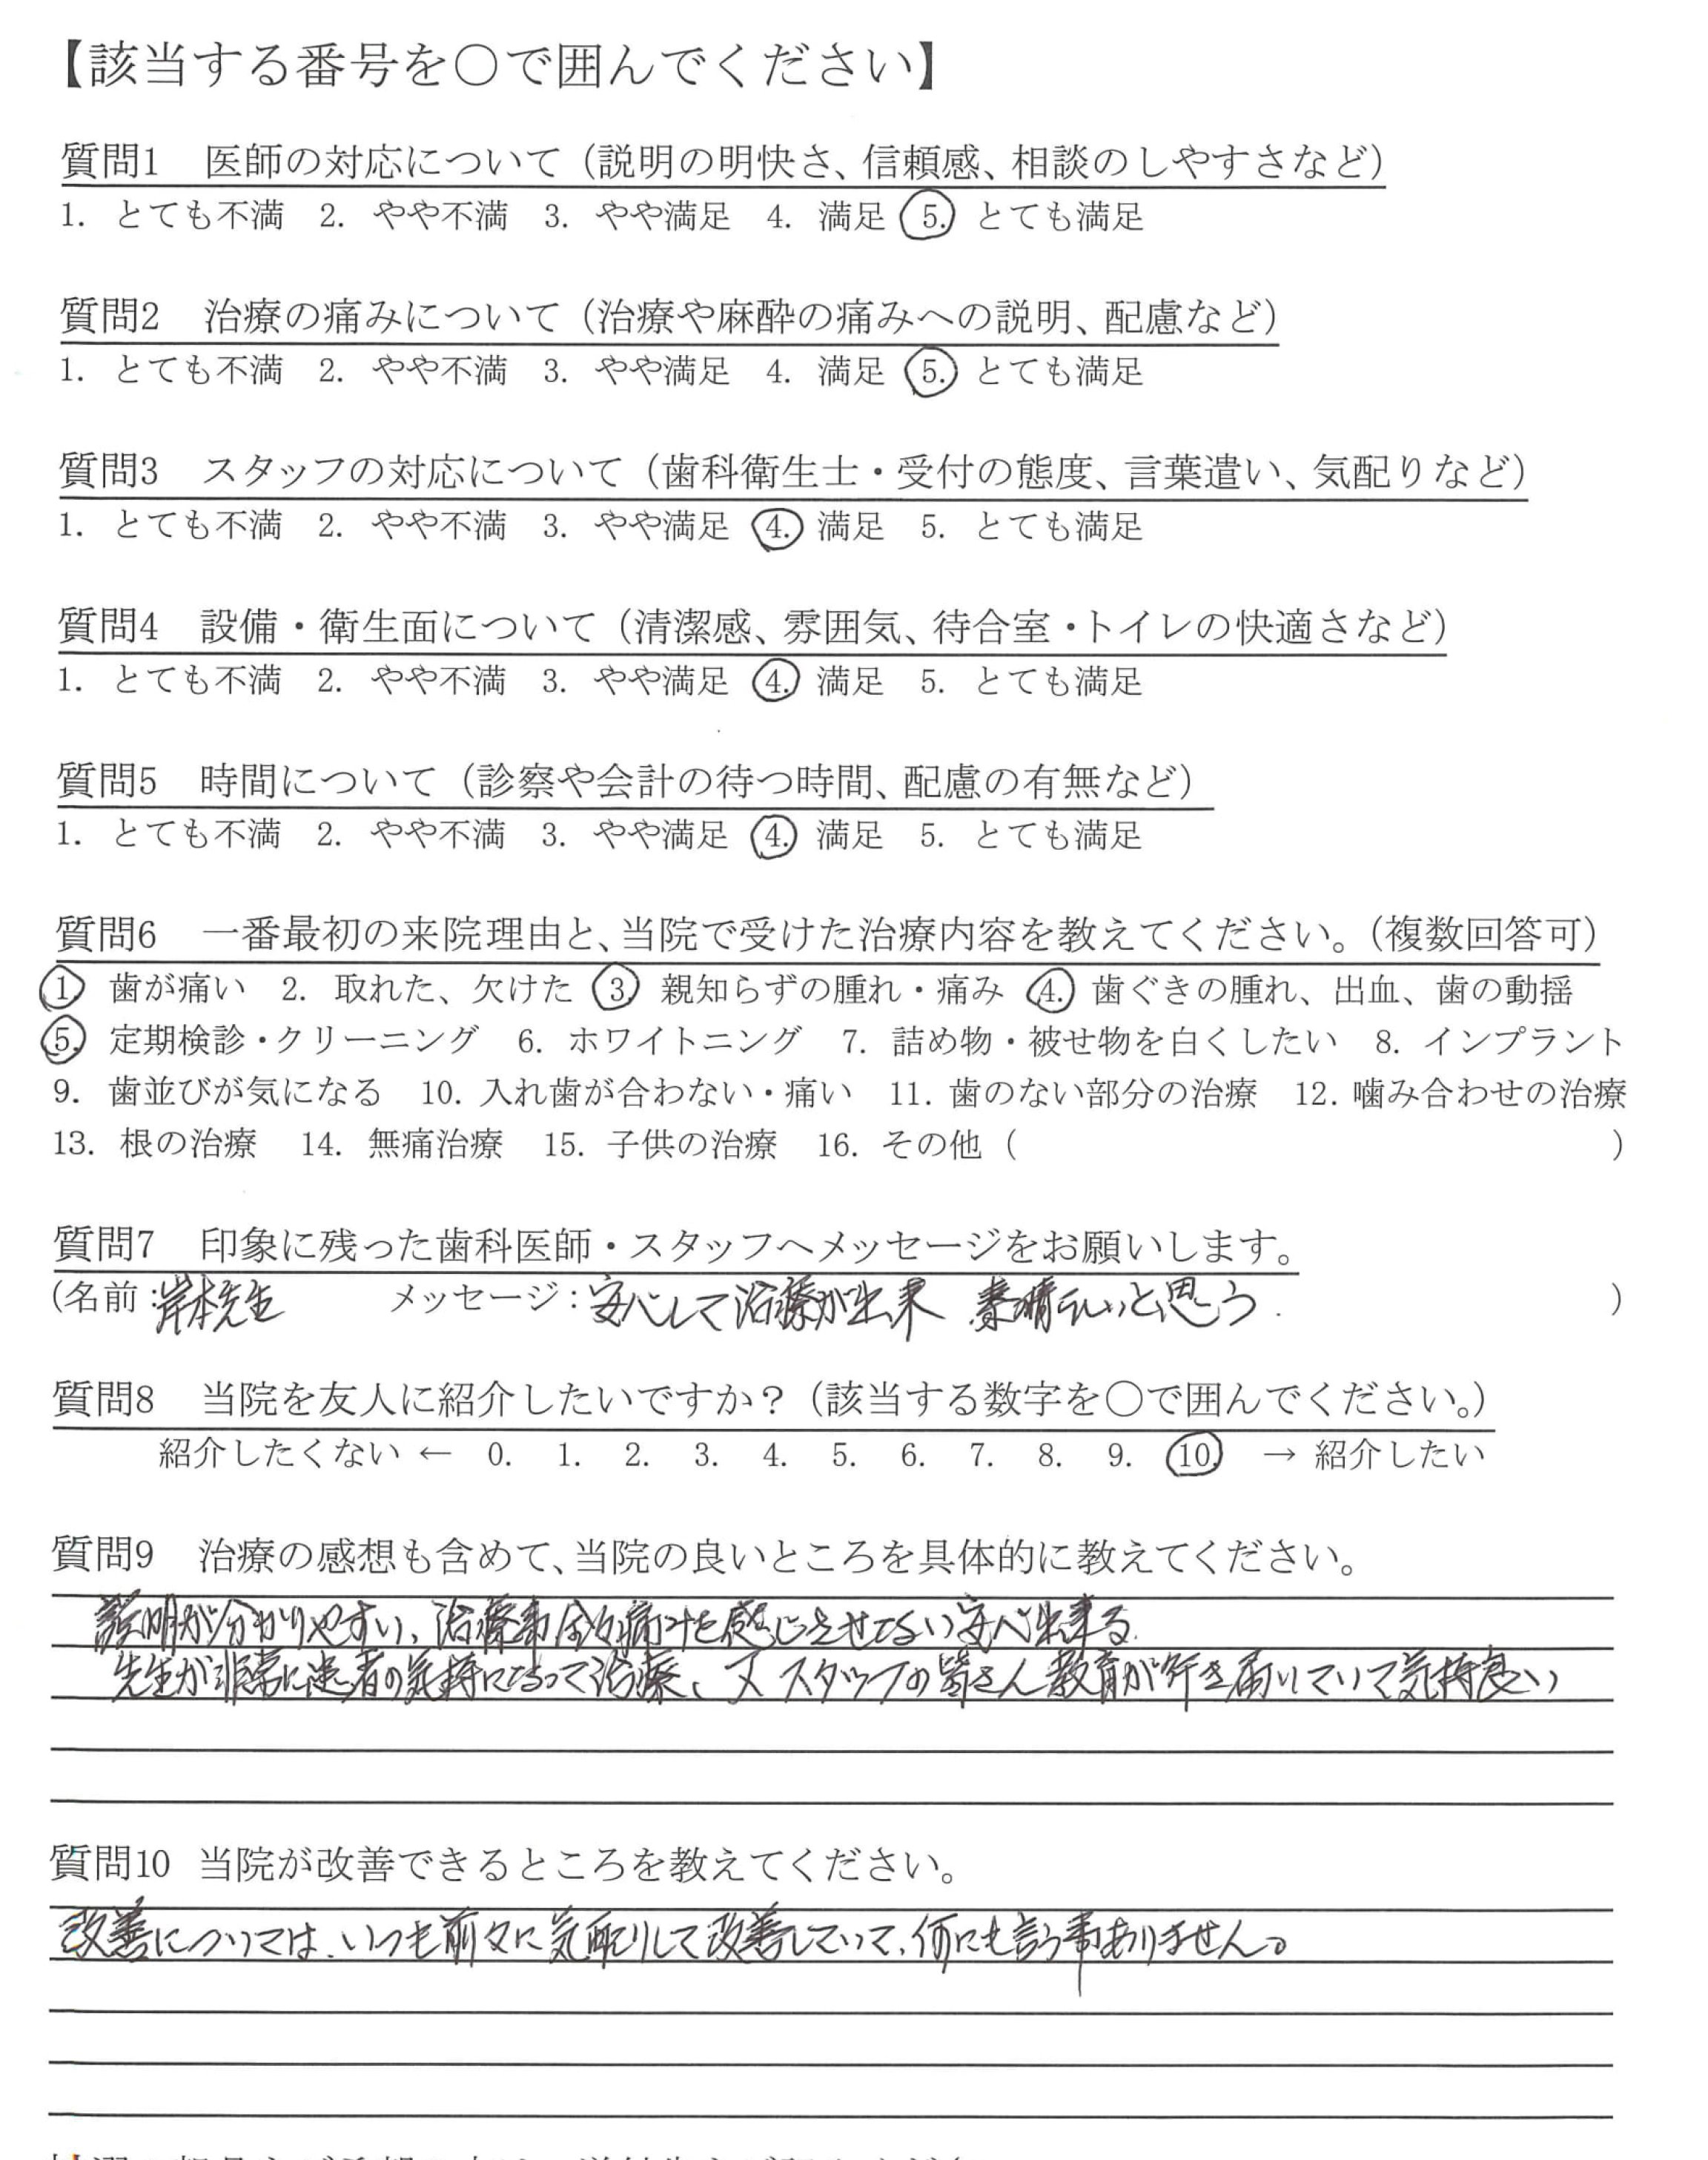 【該当する番号を○で囲んでください】
質問1　医師の対応について（説明の明快さ、信頼感、相談のしやすさなど）
1. とても不満　2. やや不満　3. やや満足　4. 満足　5. とても満足
質問2　治療の痛みについて（治療や麻酔の痛みへの説明、配慮など）
1. とても不満　2. やや不満　3. やや満足　4. 満足　5. とても満足
質問3　スタッフの対応について（歯科衛生士・受付の態度、言葉遣い、気配りなど）
1. とても不満　2. やや不満　3. やや満足　4. 満足　5. とても満足
質問4　設備・衛生面について（清潔感、雰囲気、待合室・トイレの快適さなど）
1. とても不満　2. やや不満　3. やや満足　4. 満足　5. とても満足
質問5　時間について（診察や会計の待つ時間、配慮の有無など）
1. とても不満　2. やや不満　3. やや満足　4. 満足　5. とても満足
質問6　一番最初の来院理由と、当院で受けた治療内容を教えてください。（複数回答可）
1. 歯が痛い　2. 取れた、欠けた　3. 親知らずの腫れ・痛み　4. 歯ぐきの腫れ、出血、歯の動揺
5. 定期検診・クリーニング　6. ホワイトニング　7. 詰め物・被せ物を白くしたい　8. インプラント
9. 歯並びが気になる　10. 入れ歯が合わない・痛い　11. 歯のない部分の治療　12. 噛み合わせの治療
13. 根の治療　14. 無痛治療　15. 子供の治療　16. その他（　　　）
質問7　印象に残った歯科医師・スタッフへメッセージをお願いします。
（名前：岸本先生　メッセージ：安心して治療が出来 素晴らしいと思う.　）
質問8　当院を友人に紹介したいですか？（該当する数字を○で囲んでください。）
紹介したくない ← 0. 1. 2. 3. 4. 5. 6. 7. 8. 9. 10. → 紹介したい
質問9　治療の感想も含めて、当院の良いところを具体的に教えてください。
説明が分かりやすい、治療事全々痛みを感じさせてない 安心出来る
先生が非常に患者の気持になって治療、又 スタッフの皆さん教育が行き届いていて気持良い
質問10　当院が改善できるところを教えてください。
改善については、いつも前々に気配りして改善していて、何にも言う事ありません。